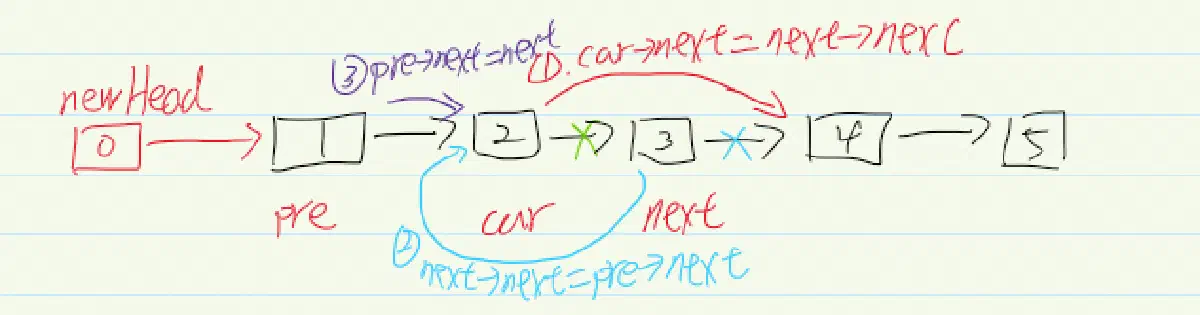 ③pre→next=next
①.car→next=next→next
newHead
0 1 2 3 4 5
pre cur next
②next→next=pre→next